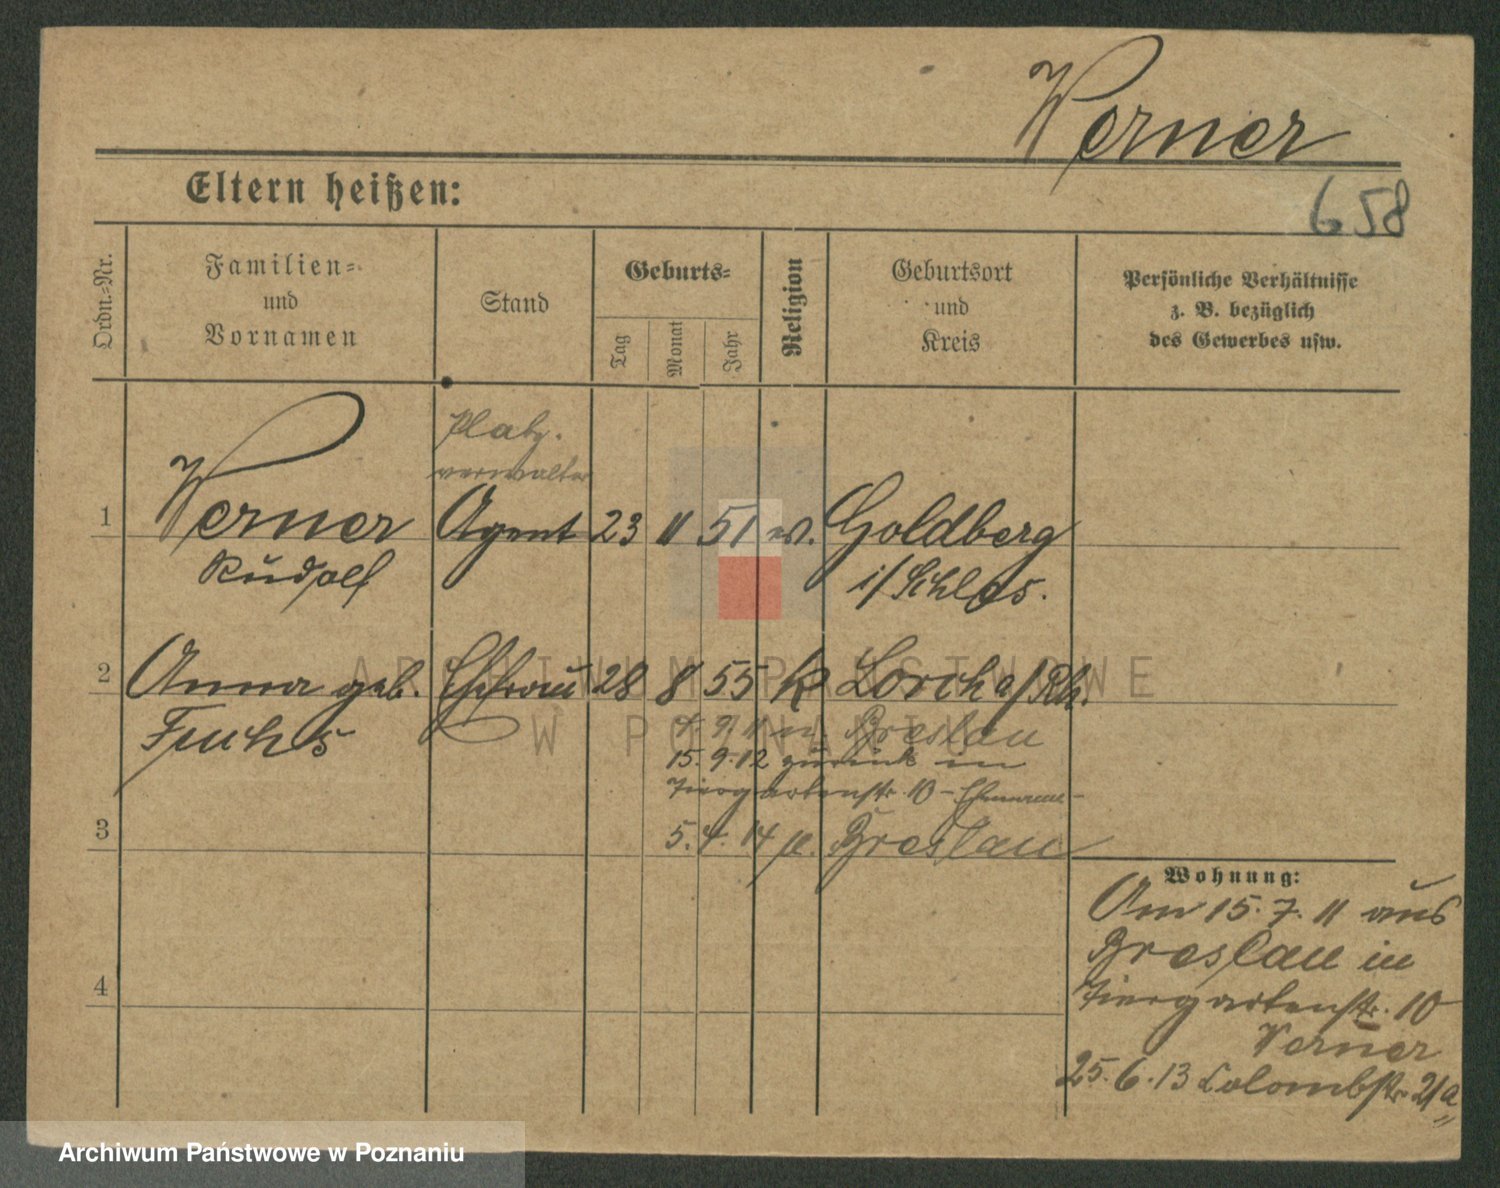 Werner
658
Eltern heißen:
Ordn.-Nr.
Familien-
und
Vornamen
Stand
Geburts-
Tag
Monat
Jahr
Religion
Geburtsort
und
Kreis
Persönliche Verhältnisse
z. B. bezüglich
des Gewerbes usw.
Platz-
verwalter
1 Werner Agent 23 11 51 ev. Goldberg
Rudolf i/Schles.
2 Anna geb. Ehefrau 28 8 55 k Lorch a/Rh.
Fuchs
4. 9. 11 n. Breslau
15. 9. 12 zurück in
Tiergartenstr. 10 -
5. 4. 14 n. Breslau
3
Wohnung:
Am 15. 7. 11 aus
Breslau in
Tiergartenstr. 10
Werner
25. 6. 13 Colombstr. 21a
4
ARCHIWUM PAŃSTWOWE
W POZNANIU
Archiwum Państwowe w Poznaniu